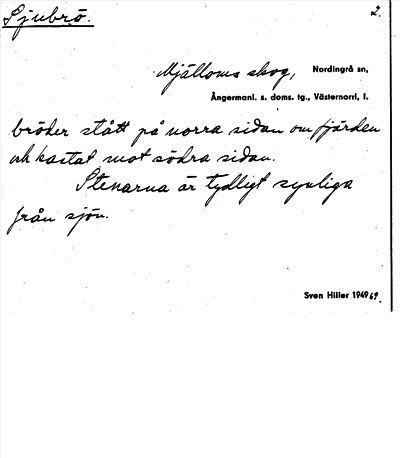 Sjubrö.
2.
Mjälloms skog, Nordingrå sn,
Ångermanl. s. doms. tg., Västernorrl, l.
bröder stått på norra sidan om fjärden
och kastat mot södra sidan.
Stenarna är tydligt synliga
från sjön.
Sven Hiller 1949 69.